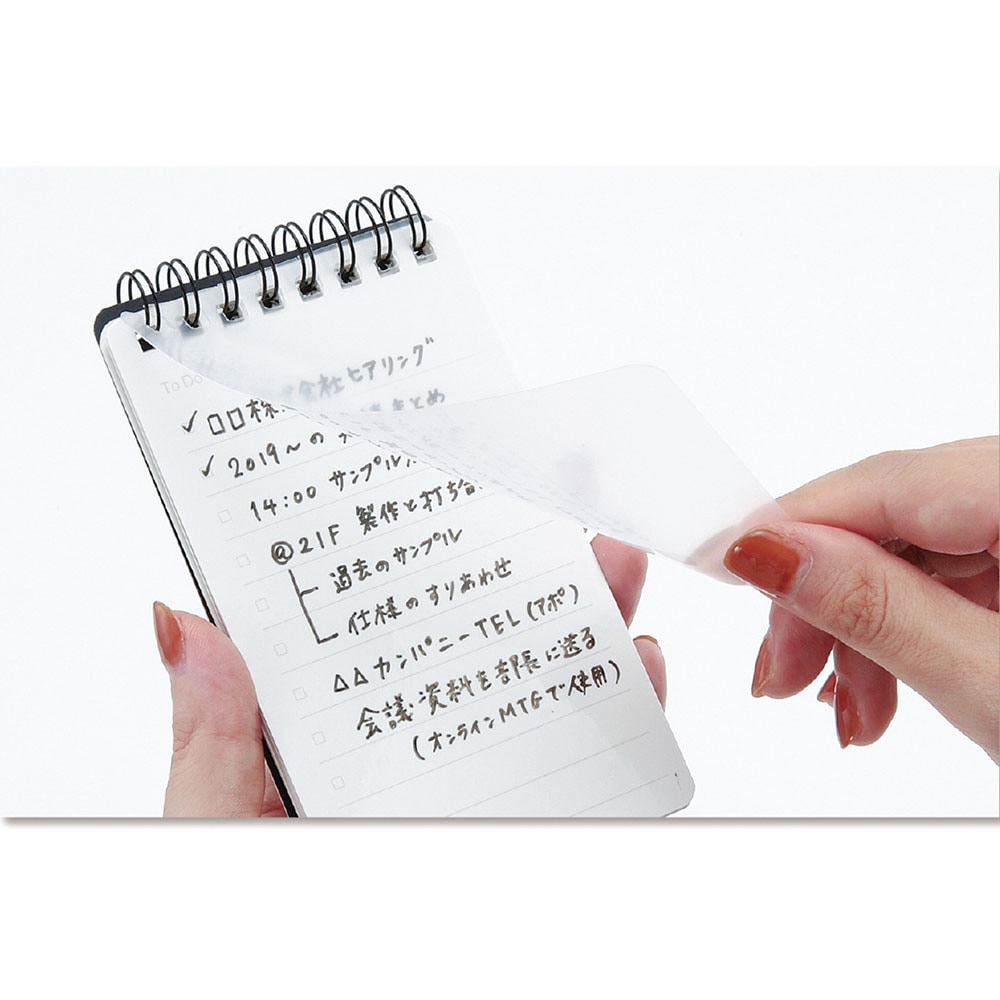 To Do
✓ □□株 会社ヒアリング
✓ 2019〜の まとめ
14:00 サンプル
@21F 製作と打ち合
過去のサンプル
仕様のすりあわせ
△△カンパニーTEL(アポ)
会議資料を部長に送る
(オンラインMTGで使用)